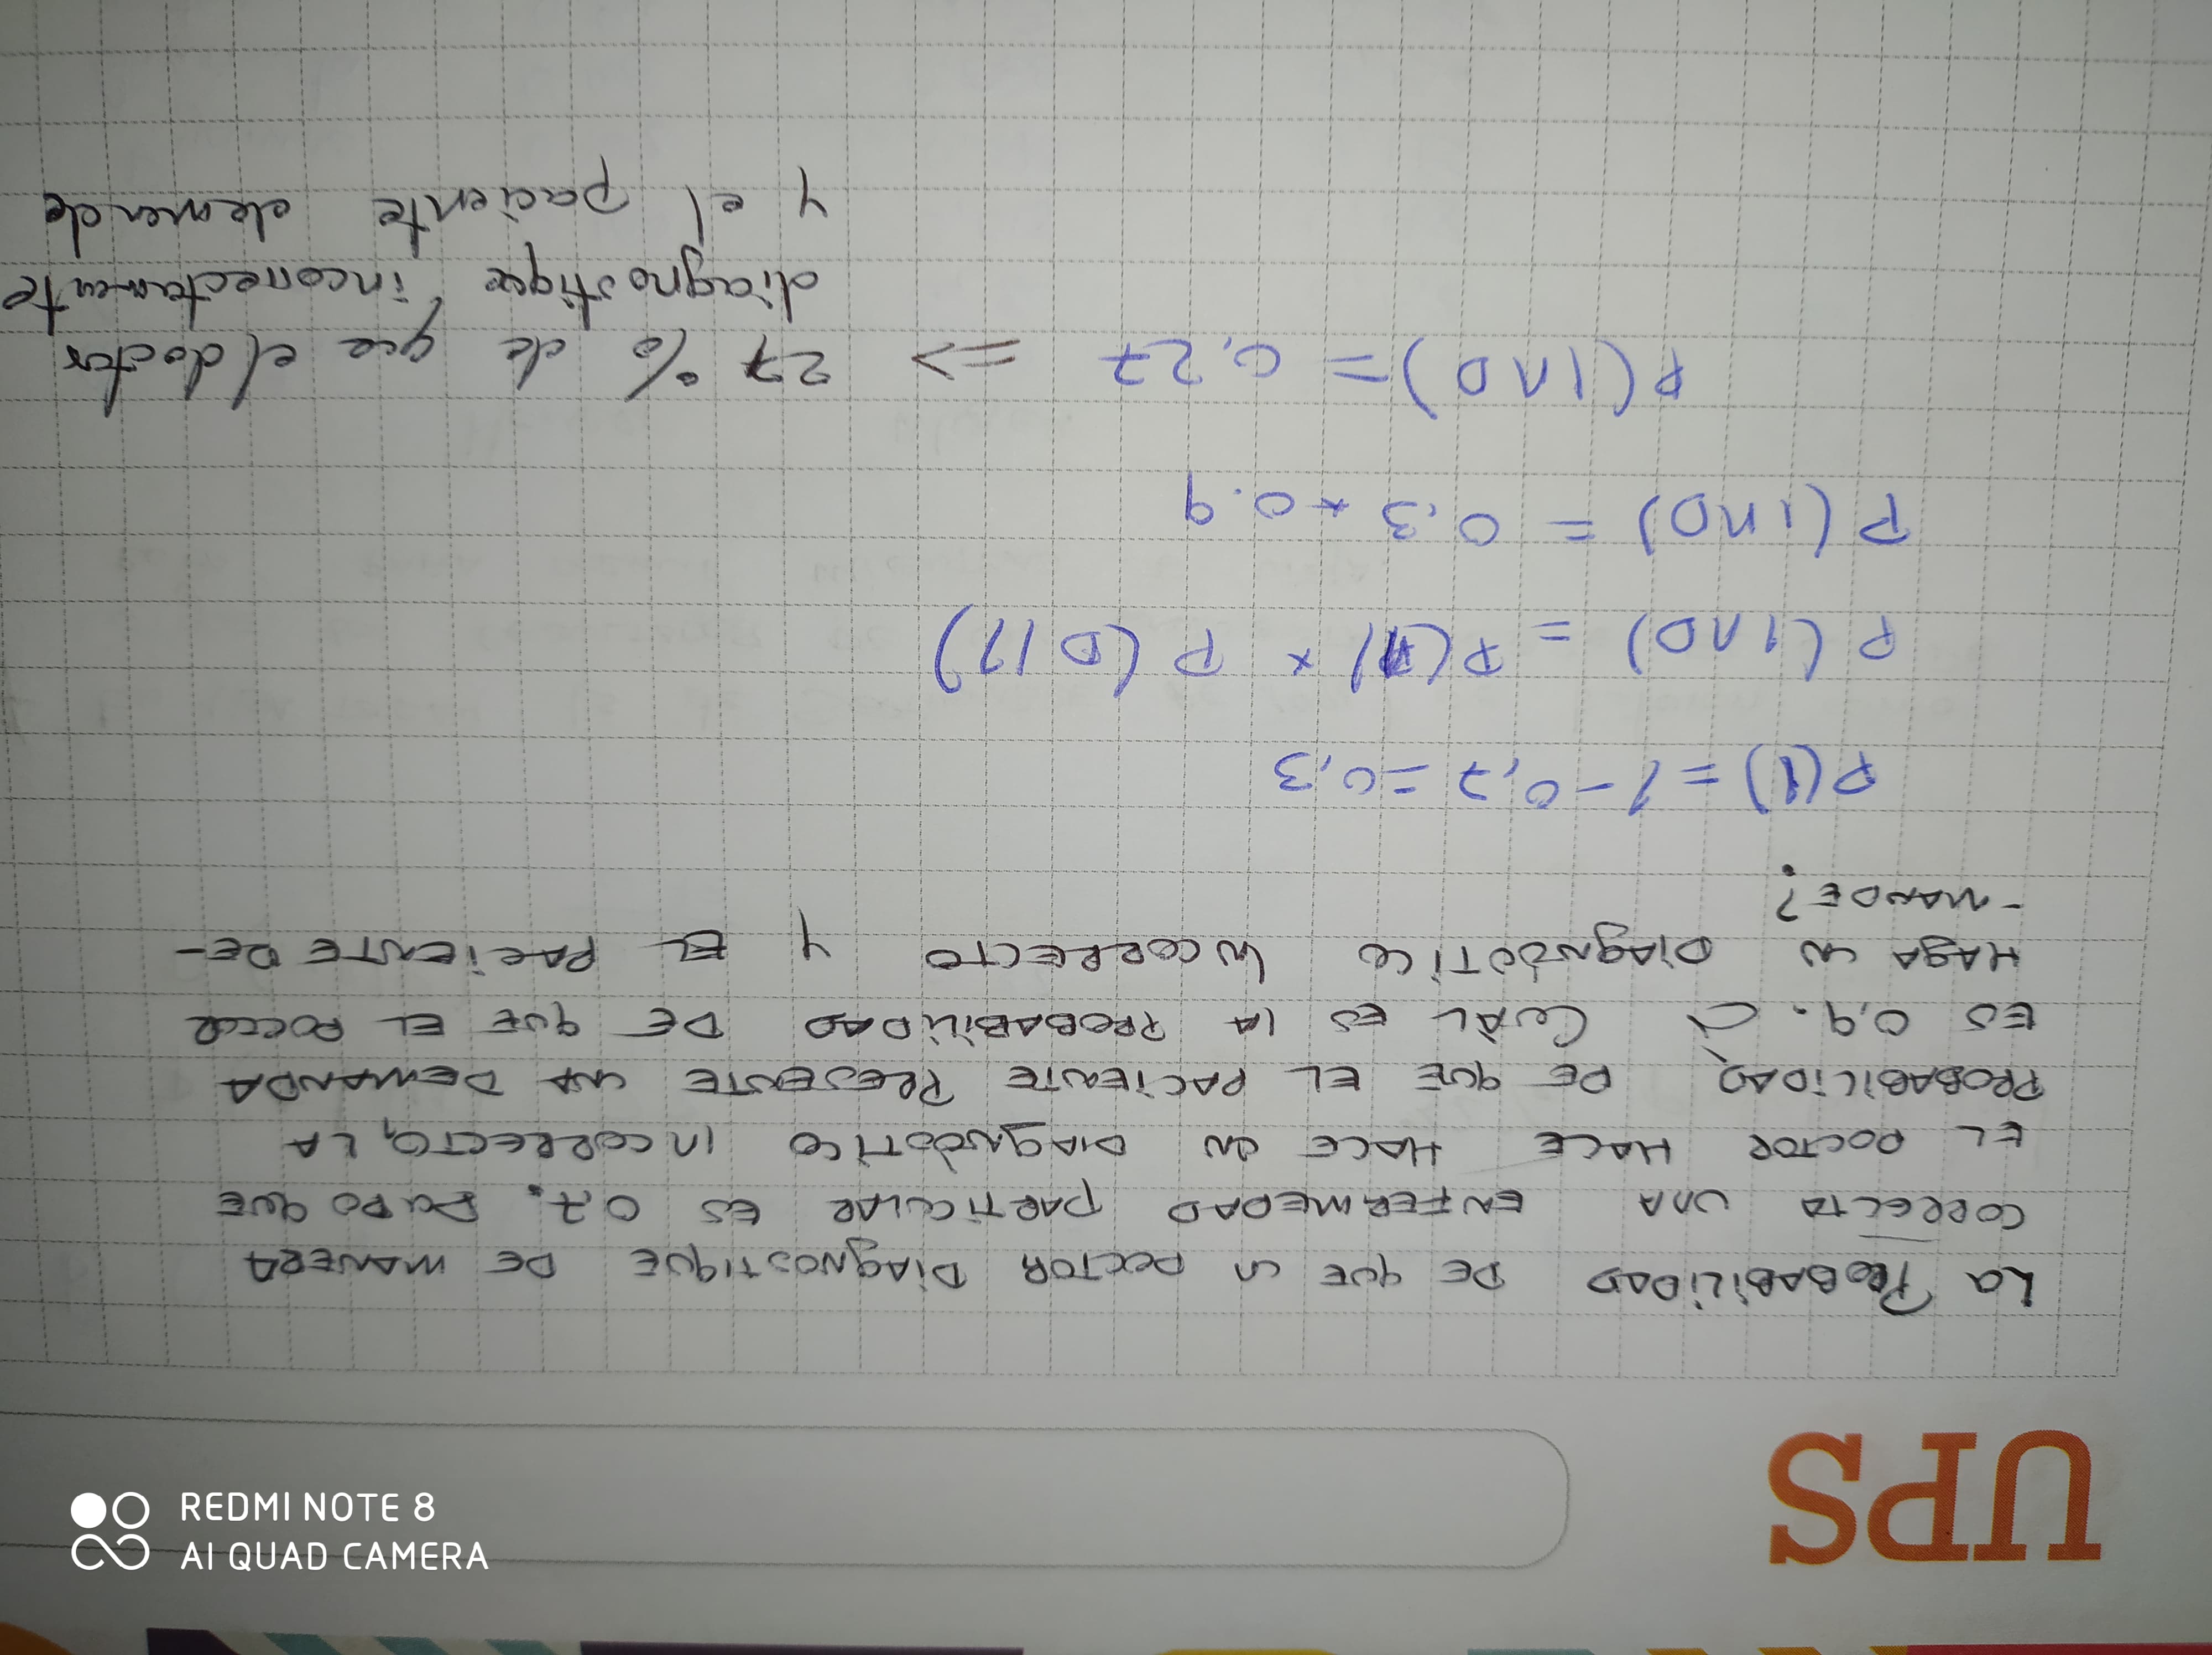 UPS
La PROBABILIDAD DE QUE UN DOCTOR DIAGNOSTIQUE DE MANERA
CORRECTA UNA ENFERMEDAD PARTICULAR ES 0,7. DADO QUE
EL DOCTOR HACE HACE UN DIAGNÓSTICO INCORRECTO, LA
PROBABILIDAD DE QUE EL PACIENTE PRESENTE UNA DEMANDA
ES 0,9. ¿ CUÁL ES LA PROBABILIDAD DE QUE EL DOCTOR
HAGA UN DIAGNÓSTICO INCORRECTO Y EL PACIENTE DE-
-MANDE?
P(I) = 1 - 0,7 = 0,3
P(I∩D) = P(I) × P(D|I)
P(I∩D) = 0,3 * 0.9
P(I∩D) = 0,27 => 27 % de que el doctor
diagnostique incorrectamente
y el paciente demande
REDMI NOTE 8
AI QUAD CAMERA